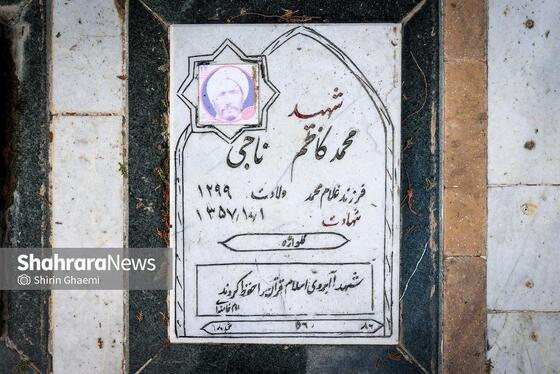 شهید
محمد کاظم ناجی
فرزند غلام محمد ولادت ۱۲۹۹
شهادت ۱۳۵۷/۱۰/۱
گلواژه
شهدا آبروی اسلام قرآن را حفظ کردند
ShahraraNews
Shirin Ghaemi